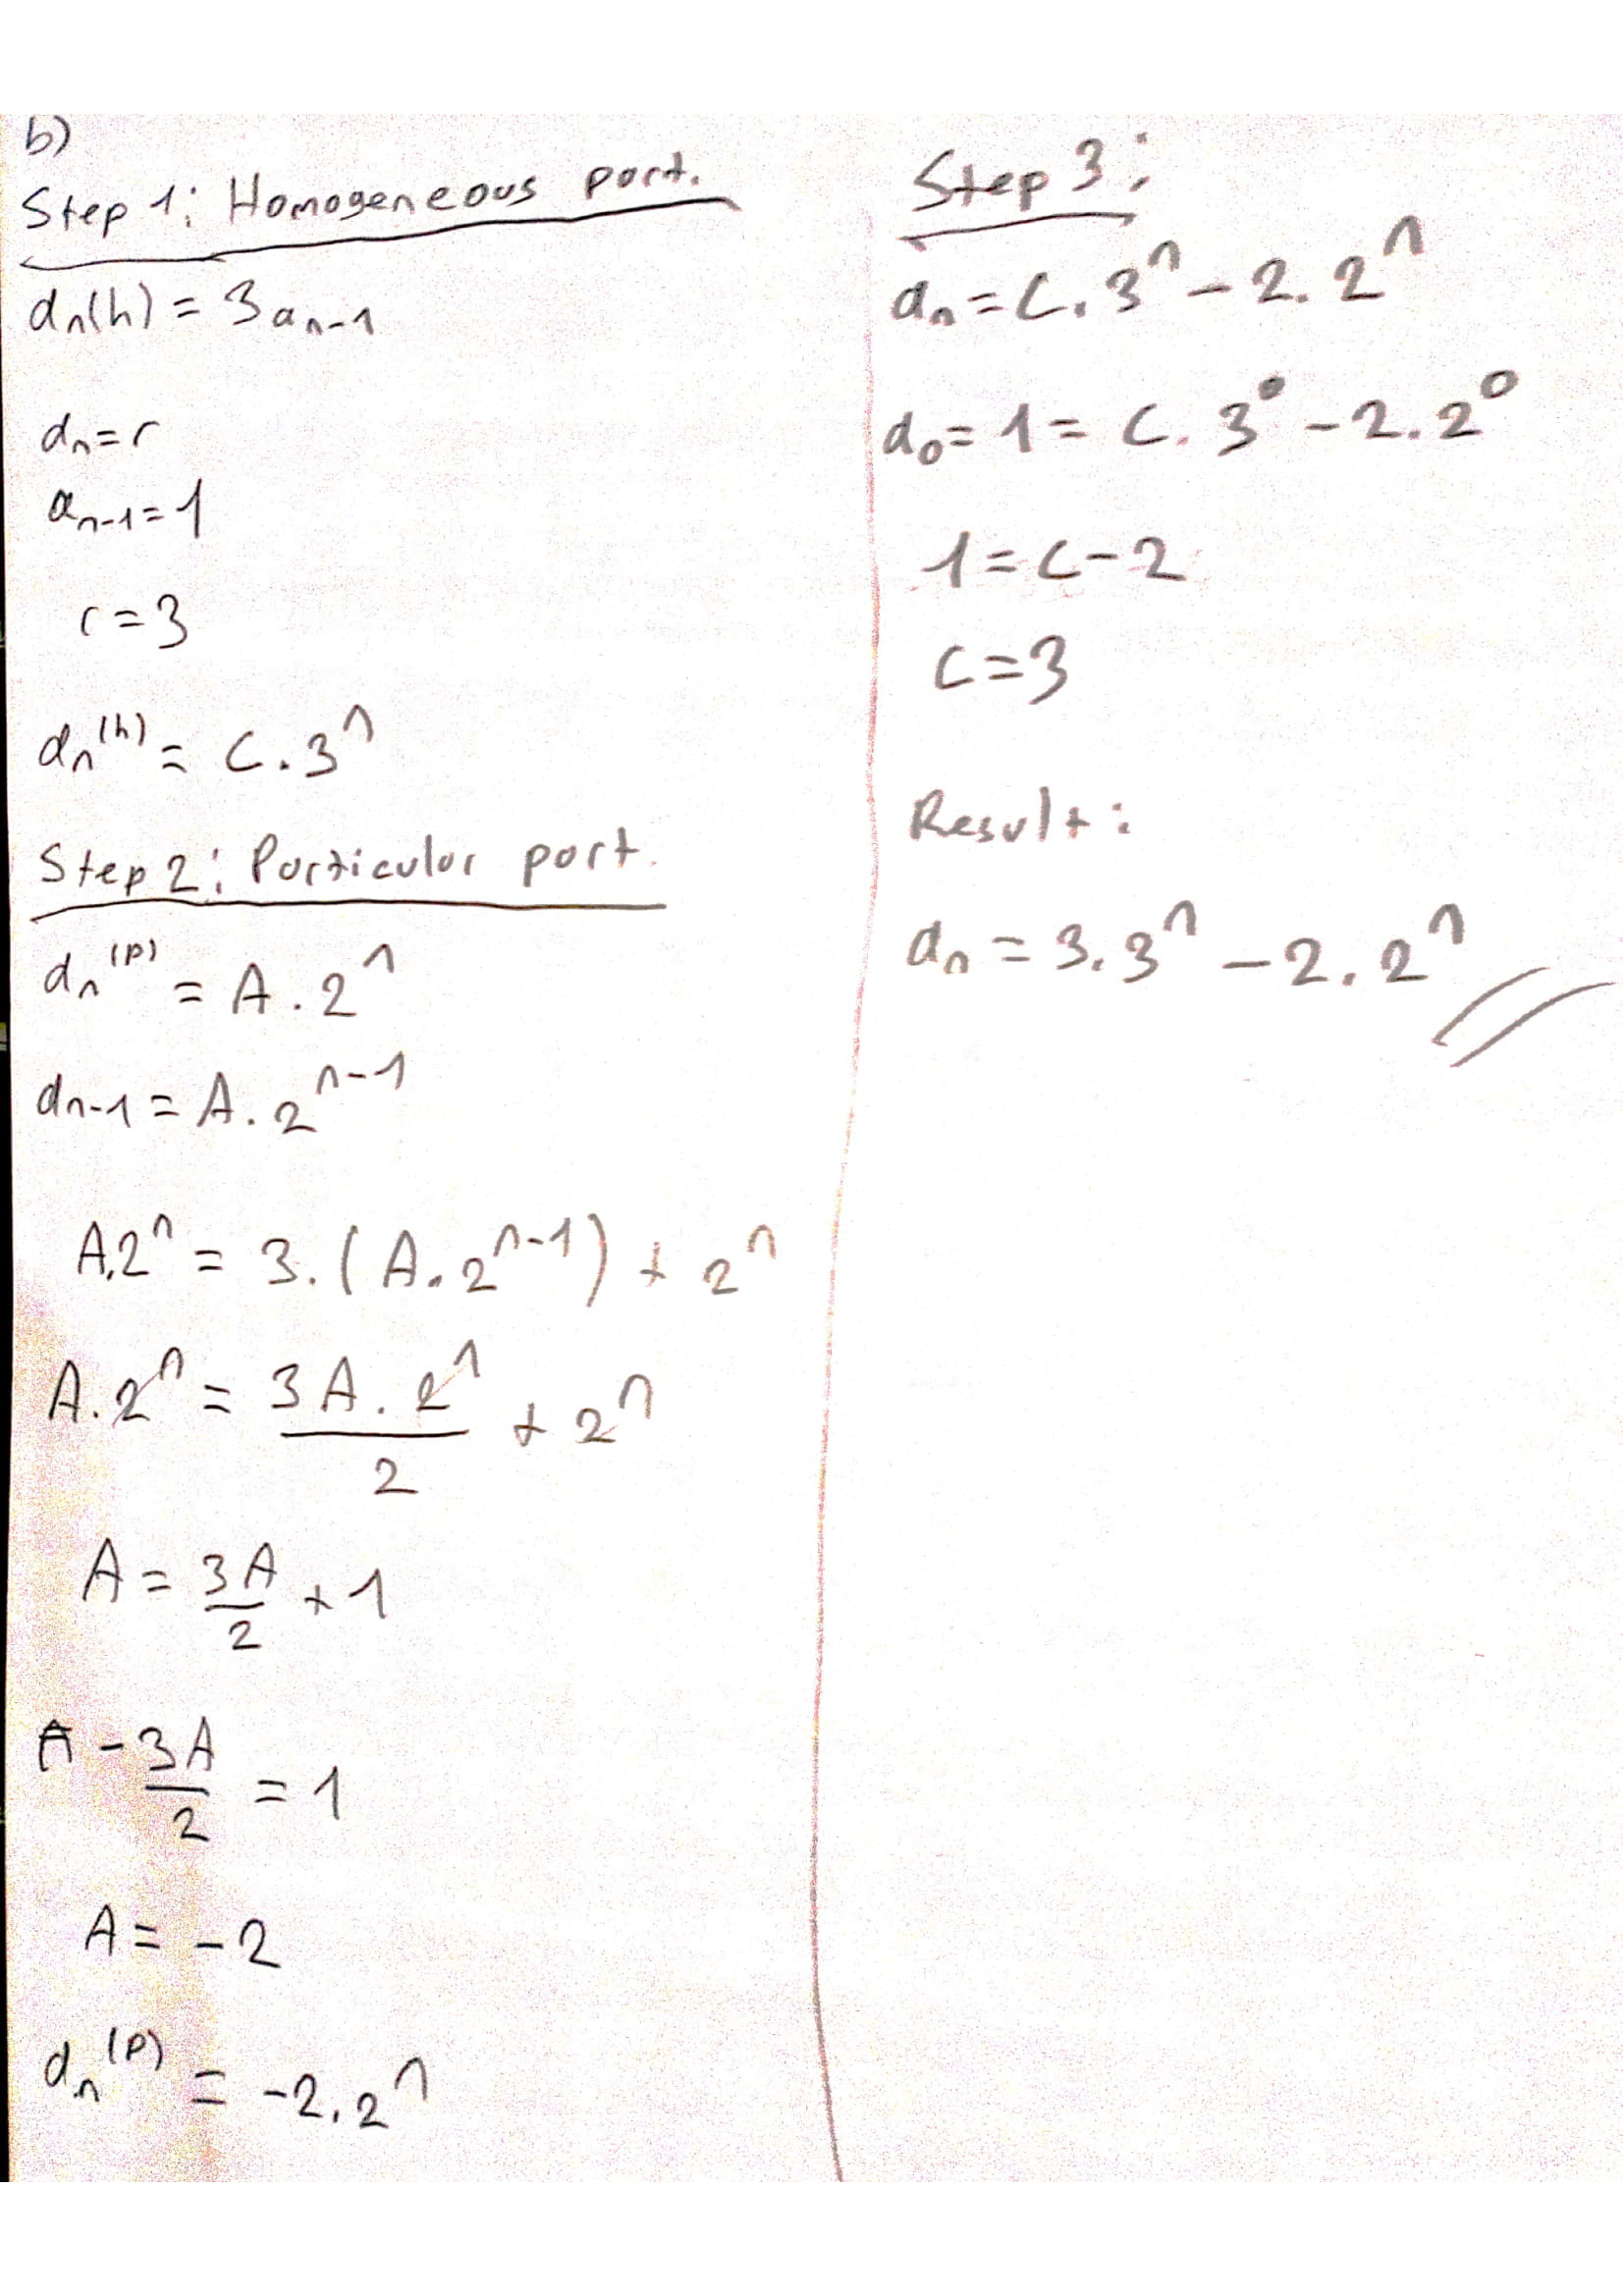 b)
Step 1: Homogeneous part.
aₙ(h) = 3aₙ₋₁
aₙ = r
aₙ₋₁ = 1
r = 3
aₙ⁽ʰ⁾ = C.3ⁿ
Step 2: Particular part.
aₙ⁽ᵖ⁾ = A.2ⁿ
aₙ₋₁ = A.2ⁿ⁻¹
A.2ⁿ = 3.(A.2ⁿ⁻¹) + 2ⁿ
A.2ⁿ = 3A.2ⁿ/2 + 2ⁿ
A = 3A/2 + 1
A - 3A/2 = 1
A = -2
aₙ⁽ᵖ⁾ = -2.2ⁿ
Step 3:
aₙ = C.3ⁿ - 2.2ⁿ
a₀ = 1 = C.3⁰ - 2.2⁰
1 = C - 2
C = 3
Result:
aₙ = 3.3ⁿ - 2.2ⁿ